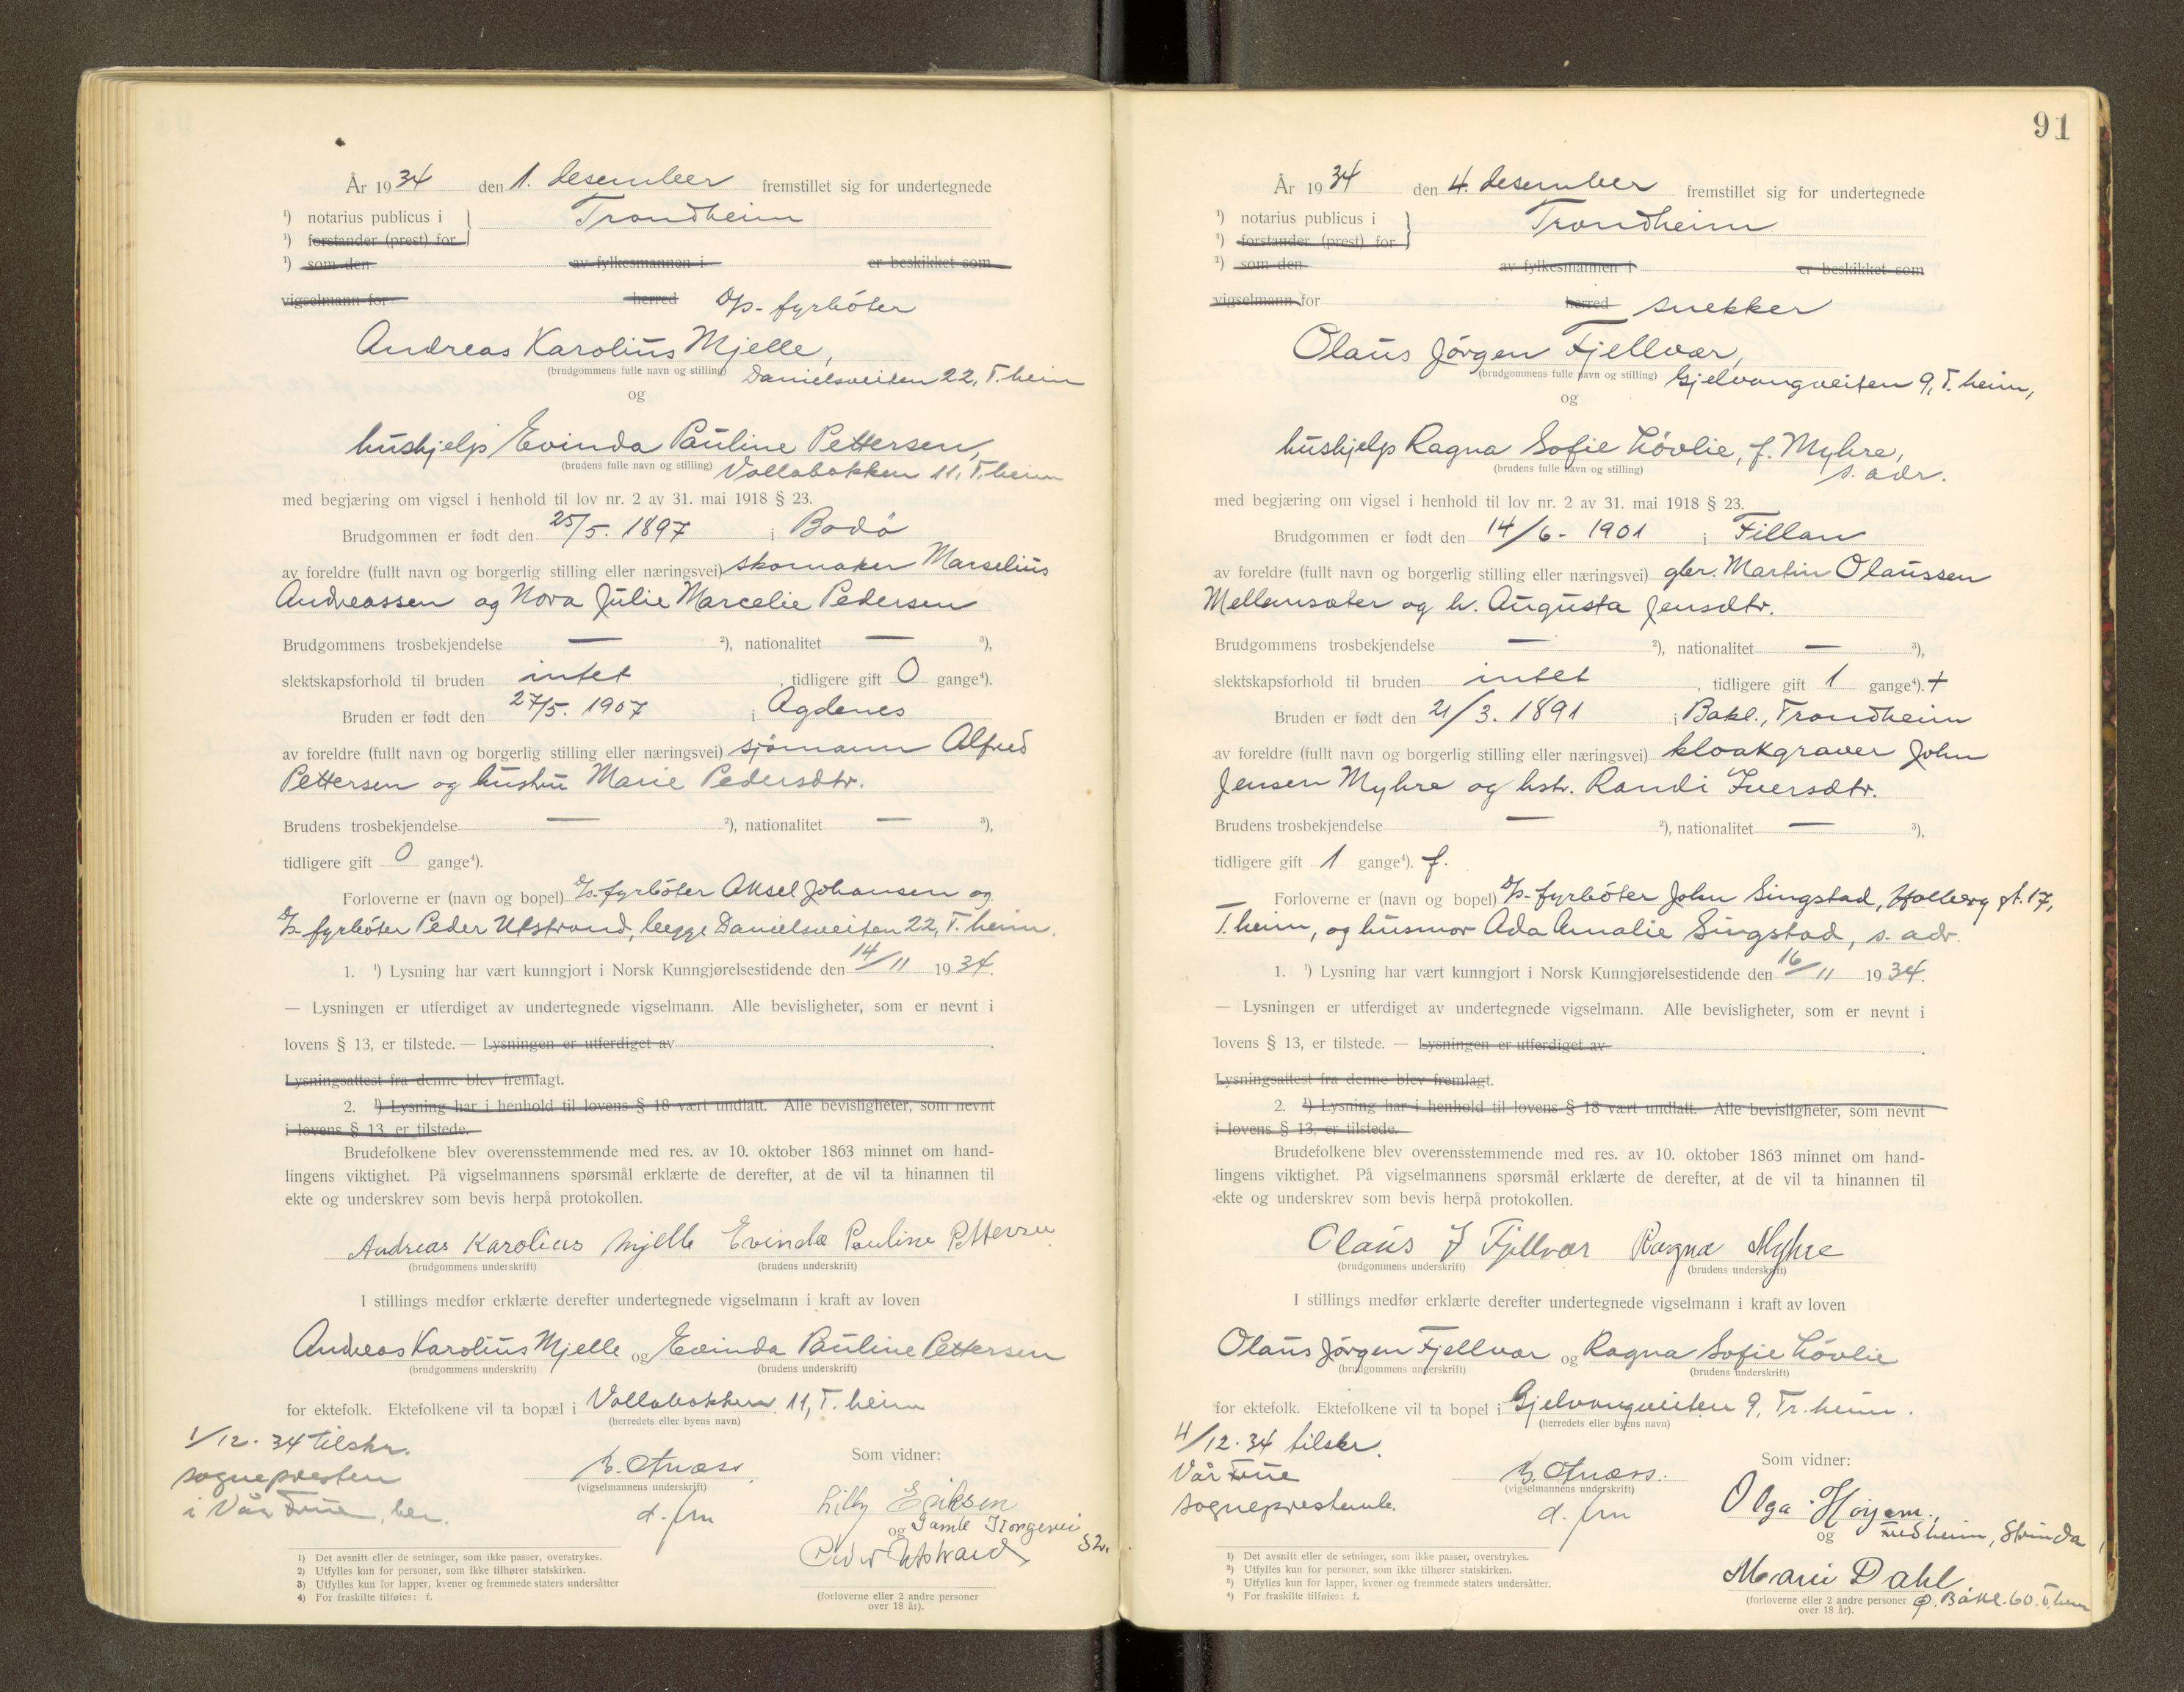 År 1934 den 1. desember fremstillet sig for undertegnede
¹) notarius publicus i Trondheim
¹) forstander (prest) for
¹) som den av fylkesmannen i er beskikket som
vigselmann for herred D/s- fyrböter
Andreas Karolius Mjelle,
(brudgommens fulle navn og stilling) Danielsveiten 22, T.heim
og
hushjelp Evinda Pauline Pettersen,
(brudens fulle navn og stilling) Vollabakken 11, T.heim
med begjæring om vigsel i henhold til lov nr. 2 av 31. mai 1918 § 23.
Brudgommen er født den 25/5. 1897 i Bodö
av foreldre (fullt navn og borgerlig stilling eller næringsvei) skomaker Marselius
Andreassen og Nora Julie Marcelie Pedersen
Brudgommens trosbekjendelse — ²), nationalitet — ³),
slektskapsforhold til bruden intet, tidligere gift 0 gange⁴).
Bruden er født den 27/5. 1907 i Agdenes
av foreldre (fullt navn og borgerlig stilling eller næringsvei) sjömann Alfred
Pettersen og hustru Marie Pedersdtr.
Brudens trosbekjendelse — ²), nationalitet — ³),
tidligere gift 0 gange⁴).
Forloverne er (navn og bopel) D/s-fyrböter Aksel Johansen og
D/s fyrböter Peder Utstrand, begge Danielsveiten 22, T.heim.
1. ¹) Lysning har vært kunngjort i Norsk Kunngjørelsestidende den 14/11 1934.
— Lysningen er utferdiget av undertegnede vigselmann. Alle bevisligheter, som er nevnt i
lovens § 13, er tilstede. — Lysningen er utferdiget av .
Lysningsattest fra denne blev fremlagt.
2. ¹) Lysning har i henhold til lovens § 18 vært undlatt. Alle bevisligheter, som nevnt
i lovens § 13, er tilstede.
Brudefolkene blev overensstemmende med res. av 10. oktober 1863 minnet om hand-
lingens viktighet. På vigselmannens spørsmål erklærte de derefter, at de vil ta hinannen til
ekte og underskrev som bevis herpå protokollen.
Andreas Karolius Mjelle Evinda Pauline Pettersen
(brudgommens underskrift) (brudens underskrift)
I stillings medfør erklærte derefter undertegnede vigselmann i kraft av loven
Andreas Karolius Mjelle og Evinda Pauline Pettersen
(brudgommens underskrift) (brudens underskrift)
for ektefolk. Ektefolkene vil ta bopæl i Vollabakken 11, T.heim
(herredets eller byens navn)
1/12. 34 tilskr.
sognepresten
i Vår Frue, her.
(vigselmannens underskrift)
Som vidner:
Lilly Eriksen
og Gamle Kongevei 32.
Peder Utstrand
(forloverne eller 2 andre personer
over 18 år).
1) Det avsnitt eller de setninger, som ikke passer, overstrykes.
2) Utfylles kun for personer, som ikke tilhører statskirken.
3) Utfylles kun for lapper, kvener og fremmede staters undersåtter
4) For fraskilte tilføies: f.
91
År 1934 den 4. desember fremstillet sig for undertegnede
¹) notarius publicus i Trondheim
¹) forstander (prest) for
¹) som den av fylkesmannen i er beskikket som
vigselmann for herred snekker
Olaus Jörgen Fjellvær,
(brudgommens fulle navn og stilling) Gjelvangveiten 9, T.heim,
og
hushjelp Ragna Sofie Lövlie, f. Myhre,
(brudens fulle navn og stilling) s. adr.
med begjæring om vigsel i henhold til lov nr. 2 av 31. mai 1918 § 23.
Brudgommen er født den 14/6- 1901 i Fillan
av foreldre (fullt navn og borgerlig stilling eller næringsvei) gbr. Martin Olaussen
Mellemsæter og h. Augusta Jensdtr.
Brudgommens trosbekjendelse — ²), nationalitet — ³),
slektskapsforhold til bruden intet, tidligere gift 1 gange⁴). +
Bruden er født den 21/3. 1891 i Bakl., Trondheim
av foreldre (fullt navn og borgerlig stilling eller næringsvei) kloakgraver John
Jensen Myhre og hstr. Randi Iversdtr.
Brudens trosbekjendelse — ²), nationalitet — ³),
tidligere gift 1 gange⁴). f.
Forloverne er (navn og bopel) D/s-fyrböter John Singstad, Holberg gt. 17,
T.heim, og husmor Ada Amalie Singstad, s. adr.
1. ¹) Lysning har vært kunngjort i Norsk Kunngjørelsestidende den 16/11 1934.
— Lysningen er utferdiget av undertegnede vigselmann. Alle bevisligheter, som er nevnt i
lovens § 13, er tilstede. — Lysningen er utferdiget av .
Lysningsattest fra denne blev fremlagt.
2. ¹) Lysning har i henhold til lovens § 18 vært undlatt. Alle bevisligheter, som nevnt
i lovens § 13, er tilstede.
Brudefolkene blev overensstemmende med res. av 10. oktober 1863 minnet om hand-
lingens viktighet. På vigselmannens spørsmål erklærte de derefter, at de vil ta hinannen til
ekte og underskrev som bevis herpå protokollen.
Olaus J Fjellvær Ragna Myhre
(brudgommens underskrift) (brudens underskrift)
I stillings medfør erklærte derefter undertegnede vigselmann i kraft av loven
Olaus Jörgen Fjellvær og Ragna Sofie Lövlie
(brudgommens underskrift) (brudens underskrift)
for ektefolk. Ektefolkene vil ta bopel i Gjelvangveiten 9, Tr.heim.
(herredets eller byens navn)
4/12. 34 tilskr.
Vår Frue
sogneprestemb.
(vigselmannens underskrift)
Som vidner:
Olga Höyem,
og Fredheim, Strinda
Marie Dahl
(forloverne eller 2 andre personer Ø. Bakl. 60. T.heim
over 18 år).
¹) Det avsnitt eller de setninger, som ikke passer, overstrykes.
²) Utfylles kun for personer, som ikke tilhører statskirken.
³) Utfylles kun for lapper, kvener og fremmede staters undersåtter.
⁴) For fraskilte tilføies: f.